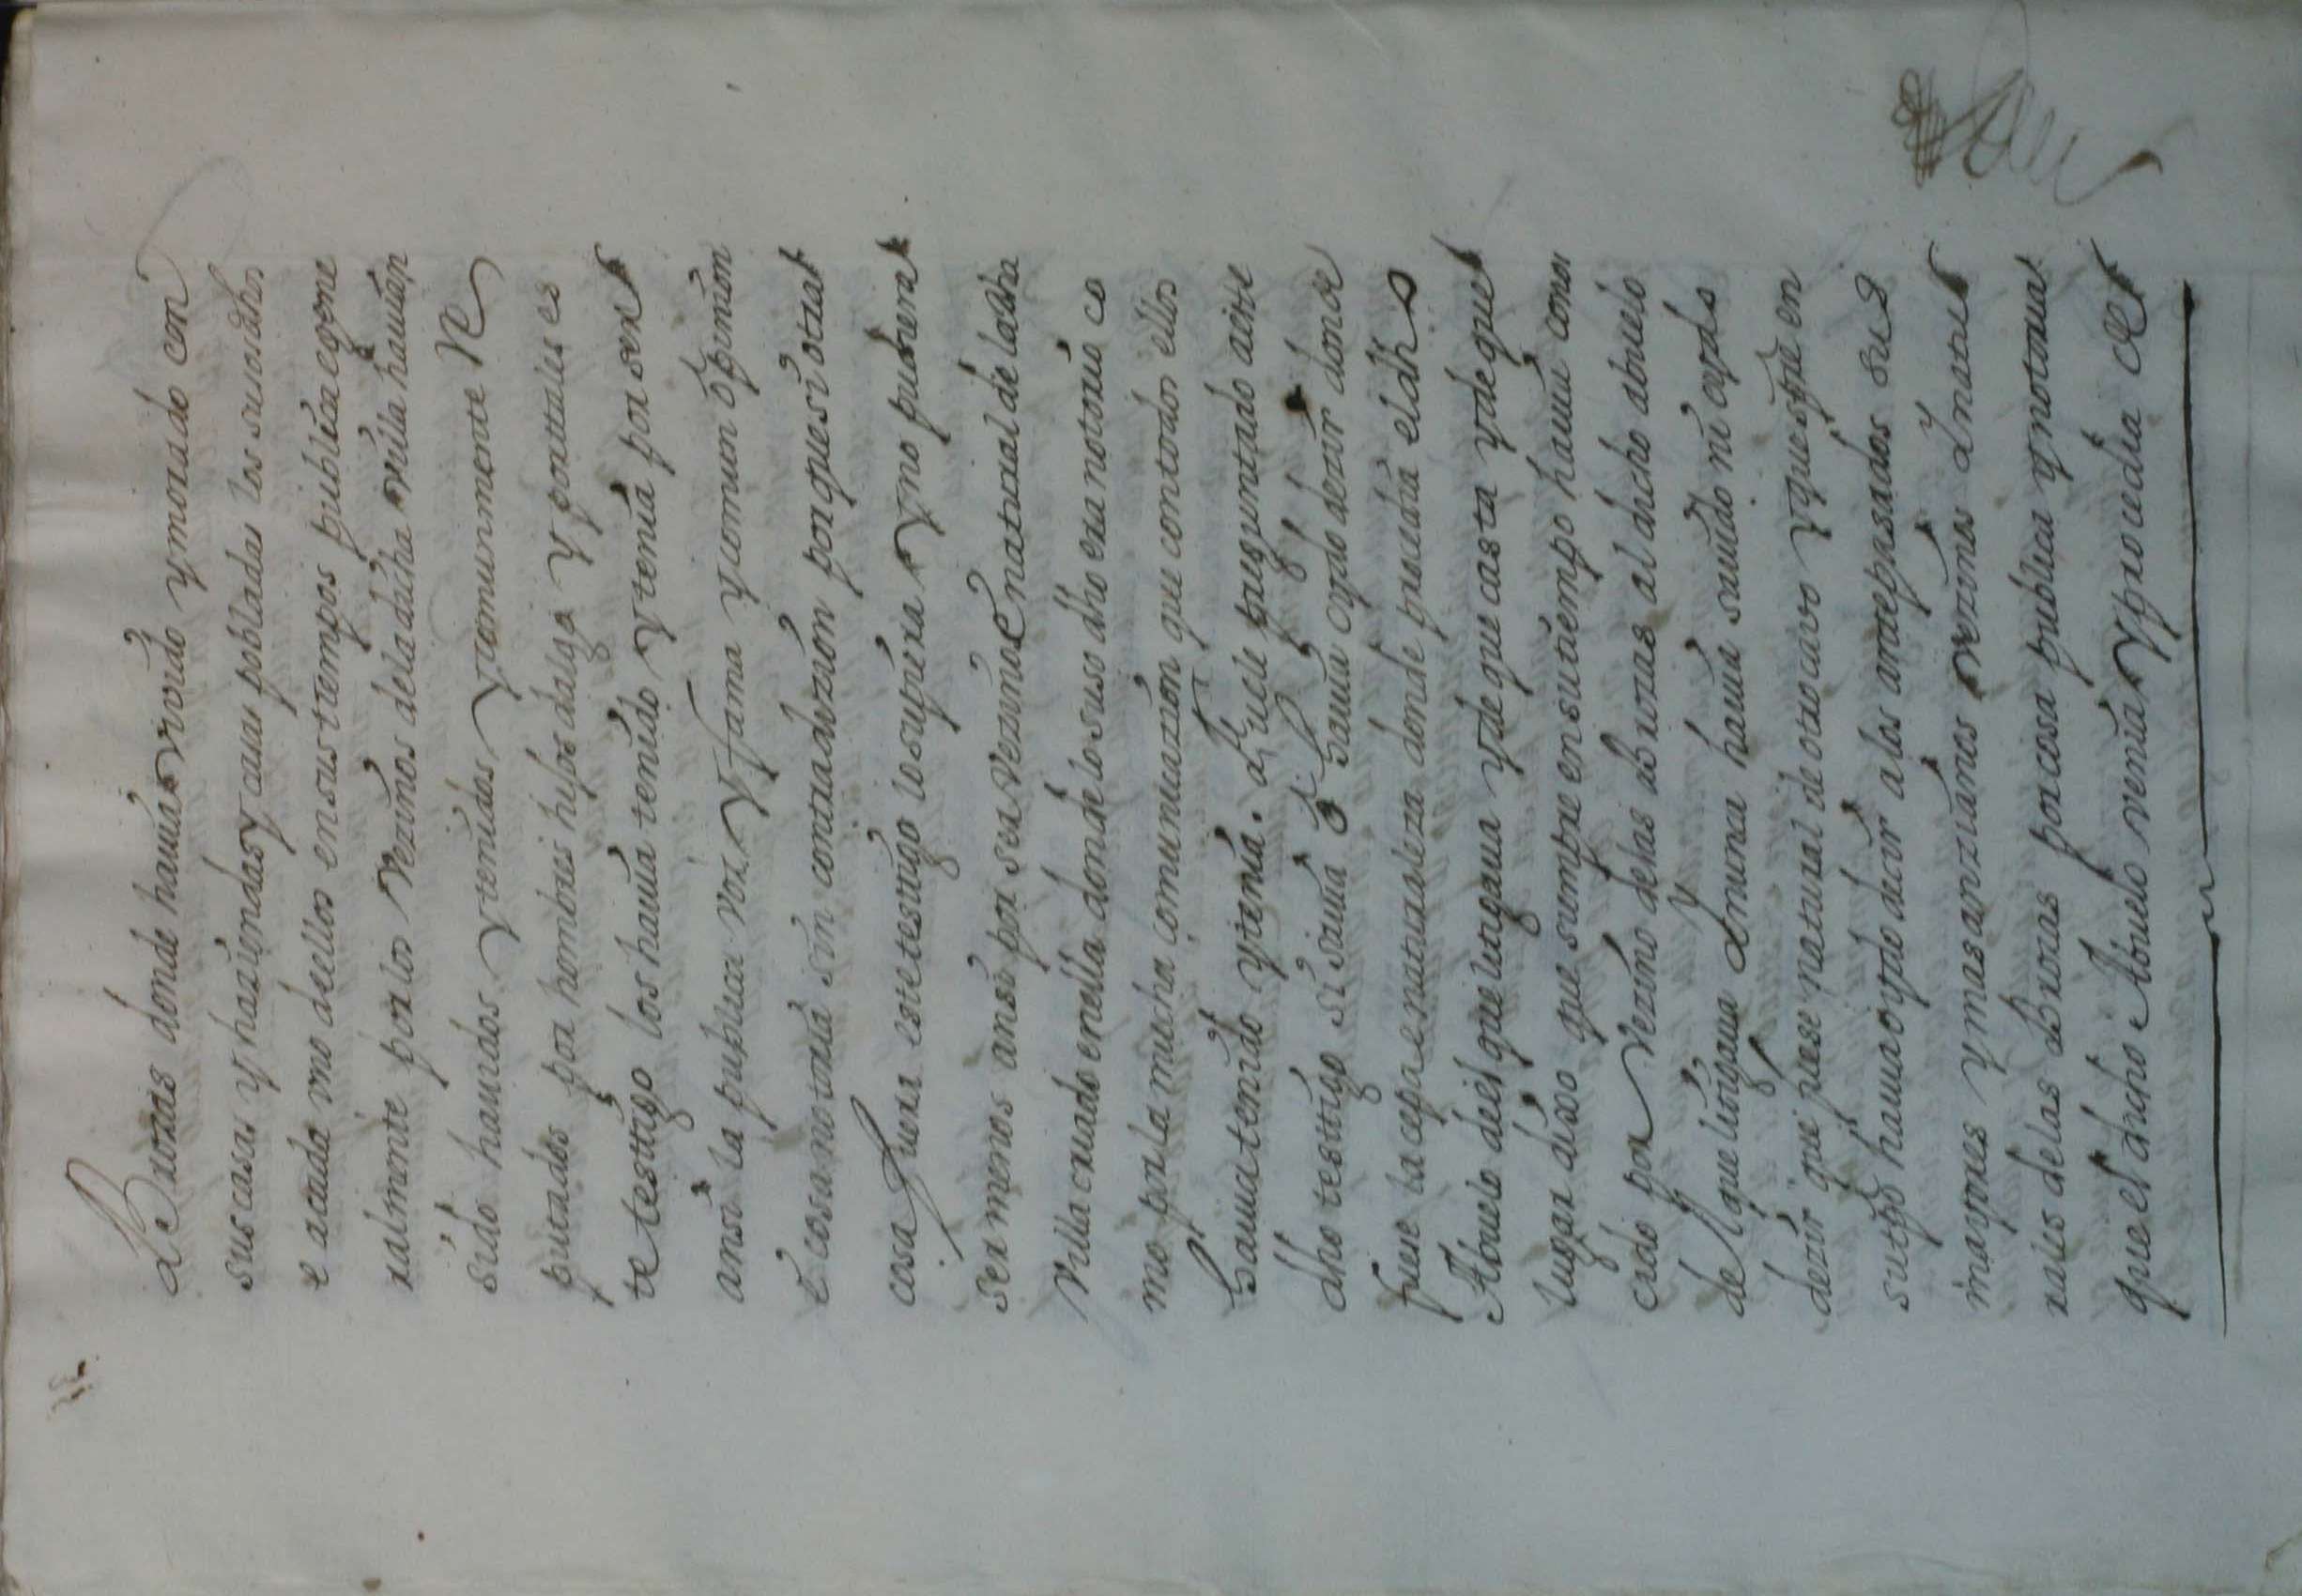 de Brozas donde hauia viuido y morado con
sus casas y haziendas y casas pobladas los susodhos
e a cada vno dellos en sus tiempos publica e gene
ralmente por los Vezinos de la dicha villa hauian
sido hauidos y tenidos y comunmente Re
putados por hombres hijos dalgo y por tales es
te testigo los hauia tenido y tenia por ser
ansi la publica voz y fama y comun opinion
e cosa notoria sin contradizion porque si otra
cosa fuera este testigo lo supiera y no pudiera
ser menos ansi por ser Vezino e natural de la dha
Villa criado en ella donde lo suso dho era notorio co
mo por la mucha comunicazion que con todos ellos
hauia tenido y tenia. fuele preguntado a este
dho testigo si sauia o hauia oydo dezir donde
fuese la cepa e naturaleza donde procedia el dho
Abuelo del que litigaua y de que casta y de que
lugar dixo que siempre en su tiempo hauia conos
cido por Vezino de las Brozas al dicho abuelo
del que litigaua y nunca hauia sauido ni oydo
dezir que fuese natural de otro cauo y que spre en
su tpo hauia oydo decir a los antepasados sus
mayores y mas anzianos vezinos y natu
rales de las Brozas por cosa publica y notoria
que el dicho Abuelo venia y procedia de